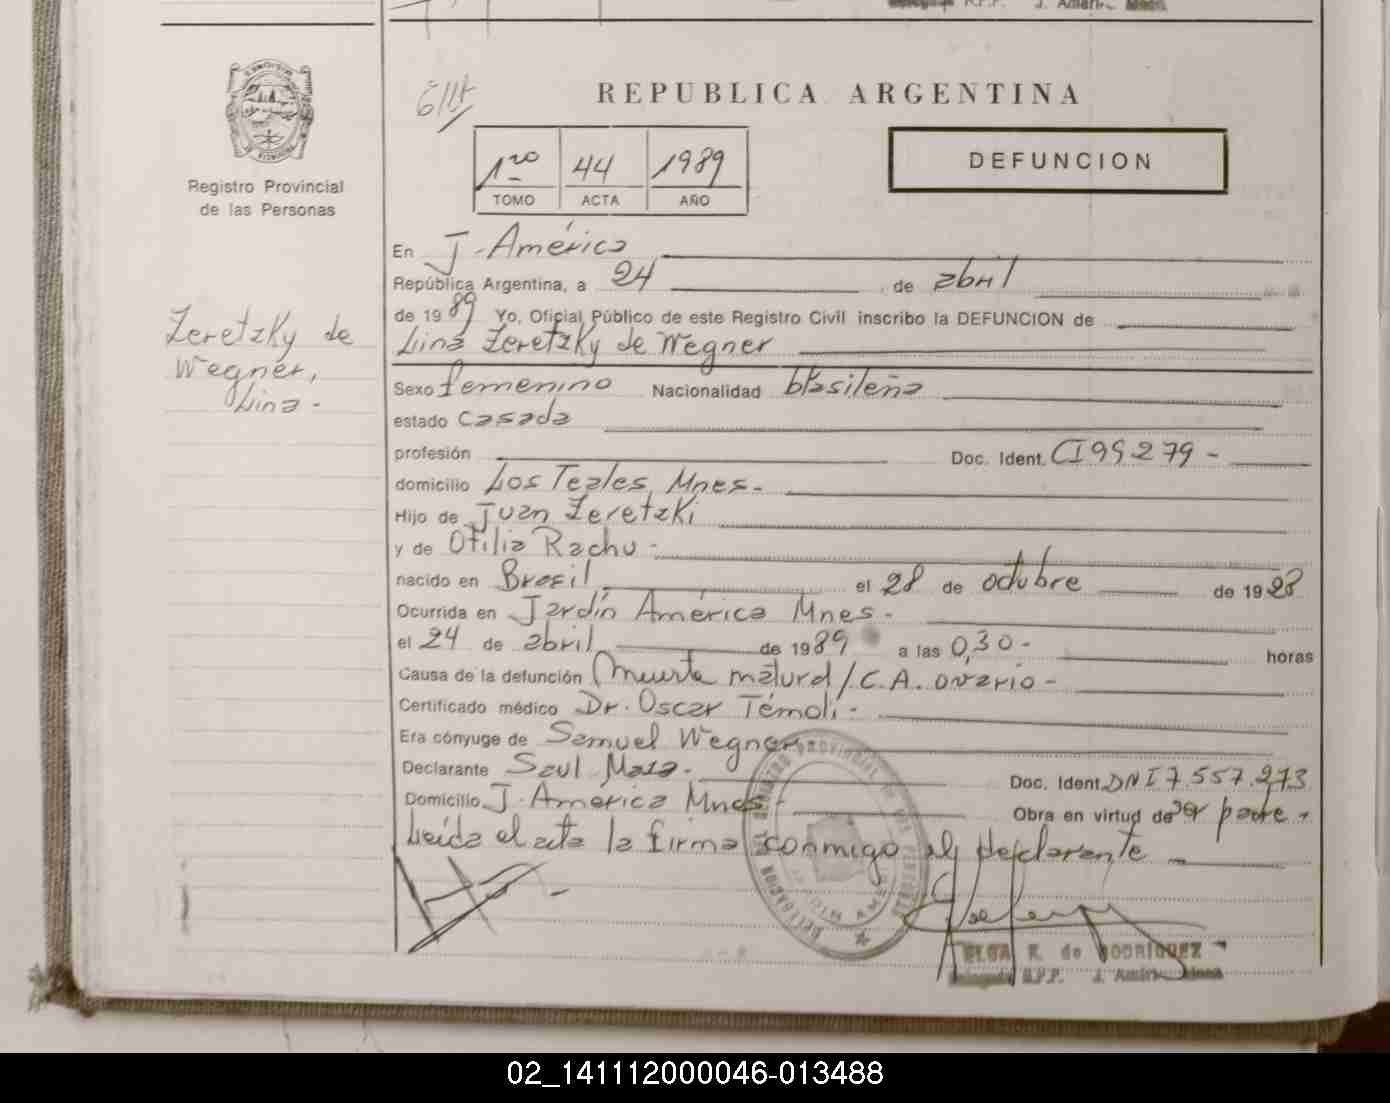 REPUBLICA ARGENTINA
1ro 44 1989
TOMO ACTA AÑO
DEFUNCION
Registro Provincial
de las Personas
Zeretzky de
Wegner,
Lina -
En J. América
República Argentina, a 24 de abril
de 1989 Yo, Oficial Público de este Registro Civil inscribo la DEFUNCION de
Lina Zeretzky de Wegner
Sexo femenino Nacionalidad brasileña
estado casada
profesión Doc. Ident. CI 99279 -
domicilio Los Teales Mnes. -
Hijo de Juan Zeretzki
y de Otilia Rachu -
nacido en Brasil el 28 de octubre de 1928
Ocurrida en Jardín América Mnes. -
el 24 de abril de 1989 a las 0,30 - horas
Causa de la defunción Muerte natural / C.A. ovario -
Certificado médico Dr. Oscar Témoli -
Era cónyuge de Samuel Wegner
Declarante Saul Maza - Doc. Ident. DNI 7.557.273
Domicilio J. América Mnes - Obra en virtud de ser parte -
Leída el acta la firma conmigo el declarante
ELGA R. de RODRIGUEZ
Delegada R.P.P. J. Amér. Mnes
02_141112000046-013488